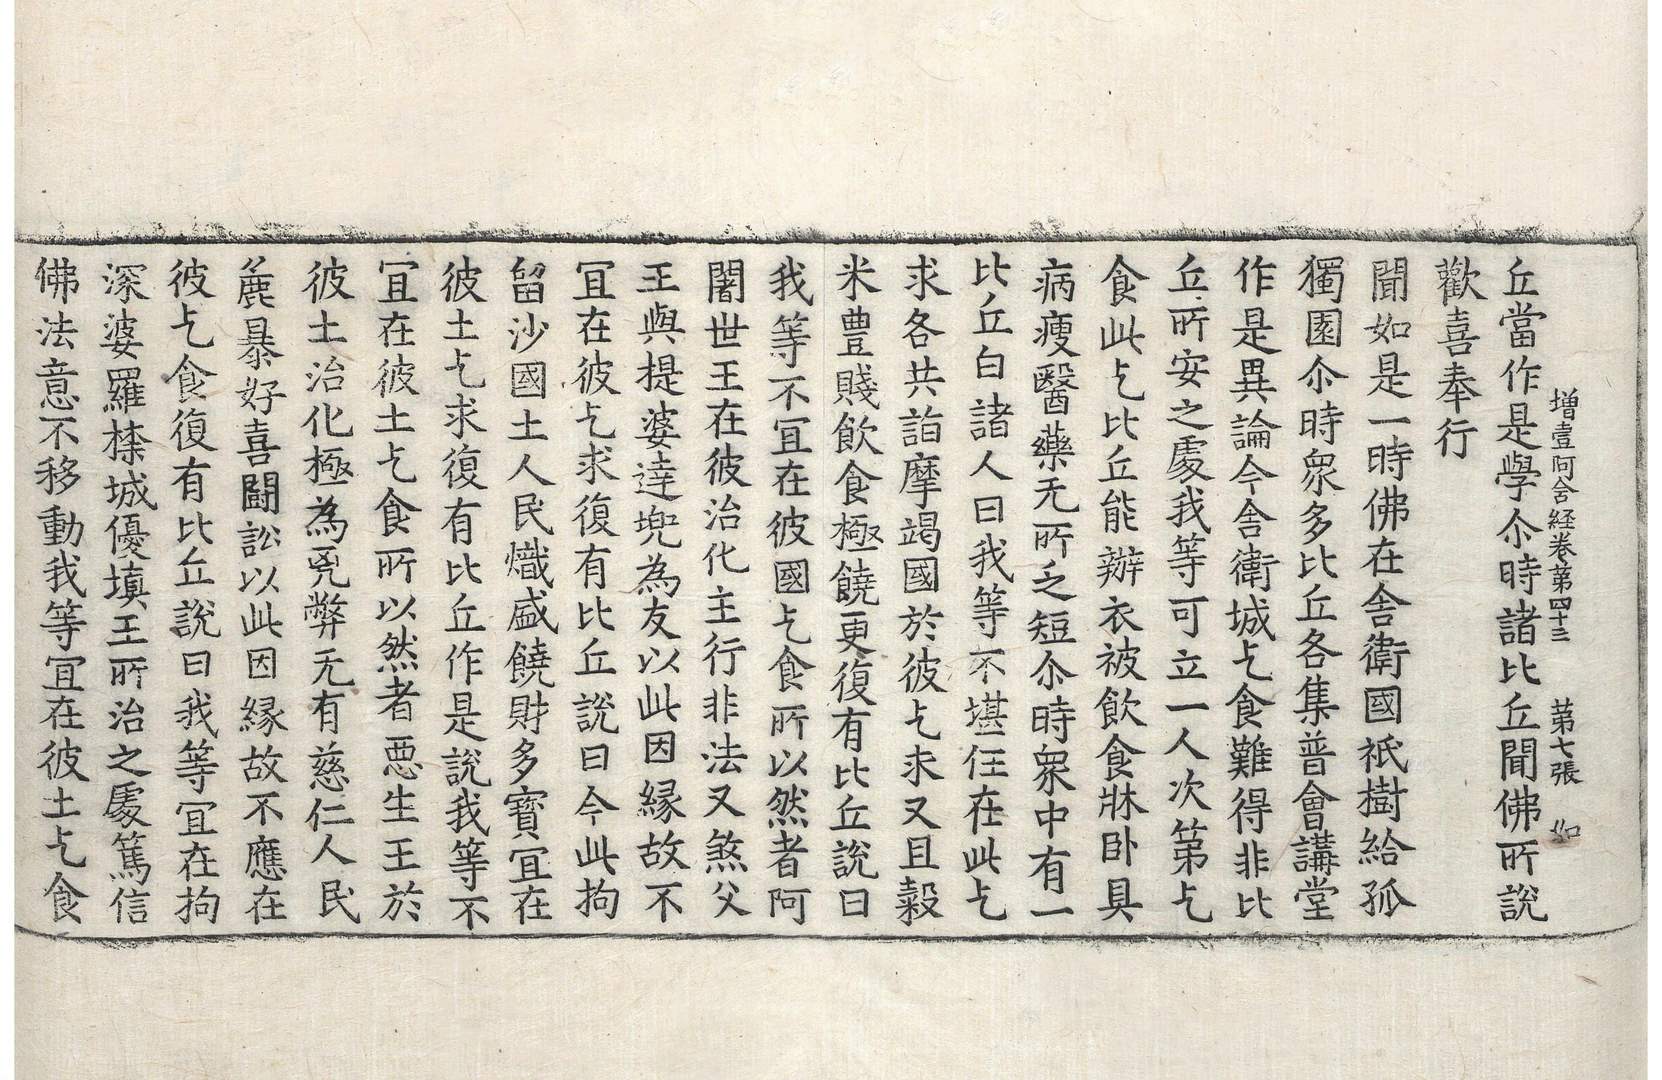 增壹阿含経卷第四十三 第七張 如
丘當作是學尒時諸比丘聞佛所說
歡喜奉行
聞如是一時佛在舍衛國祇樹給孤
獨園尒時衆多比丘各集普會講堂
作是異論今舍衛城乞食難得非比
丘所安之處我等可立一人次第乞
食此乞比丘能辦衣被飲食牀卧具
病瘦醫藥无所乏短尒時衆中有一
比丘白諸人曰我等不堪任在此乞
求各共詣摩竭國於彼乞求又且穀
米豊賤飲食極饒更復有比丘說曰
我等不冝在彼國乞食所以然者阿
闍世王在彼治化主行非法又煞父
王與提婆達兜為友以此因縁故不
冝在彼乞求復有比丘說曰今此拘
留沙國土人民熾盛饒財多寶冝在
彼土乞求復有比丘作是說我等不
冝在彼土乞食所以然者悪生王於
彼土治化極為兇弊无有慈仁人民
麁暴好喜闘訟以此因縁故不應在
彼乞食復有比丘說曰我等冝在拘
深婆羅㮈城優填王所治之處篤信
佛法意不移動我等冝在彼土乞食